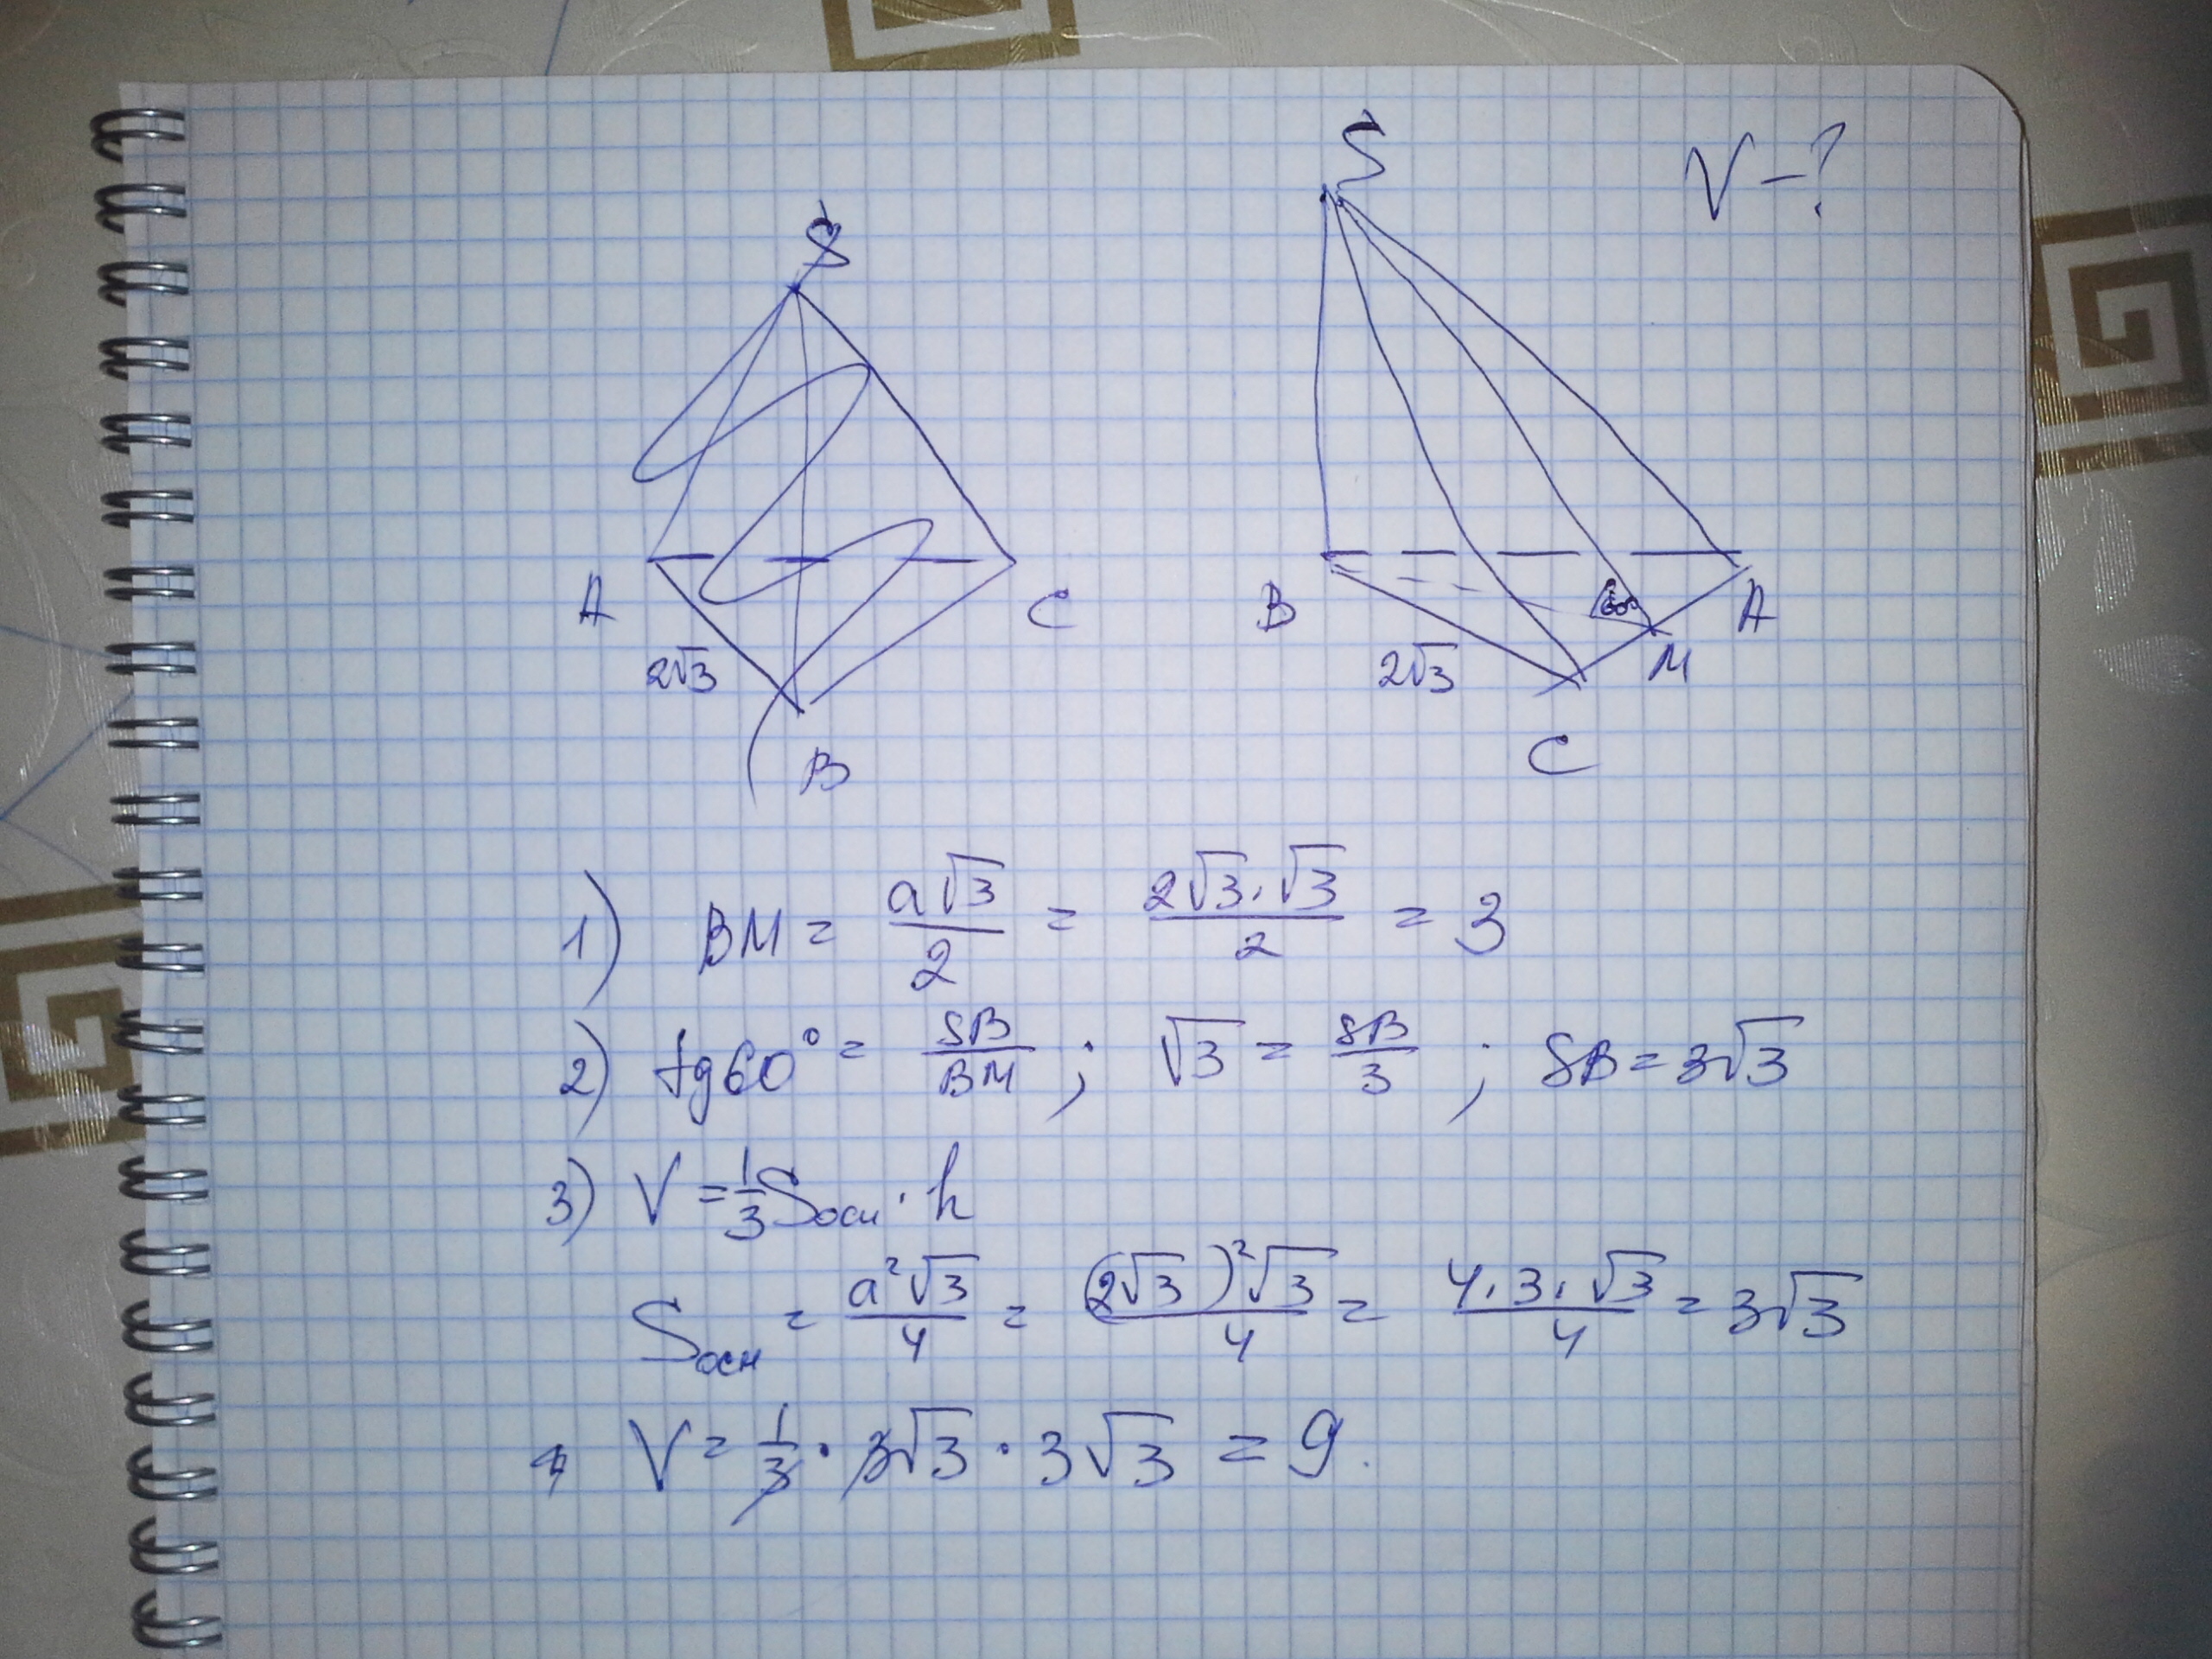 S
S
V - ?
A
C
B
A
2√3
2√3
M
B
C
60°
1) BM = a√3/2 = 2√3·√3/2 = 3
2) tg60° = SB/BM ; √3 = SB/3 ; SB = 3√3
3) V = 1/3 Sосн · h
Sосн = a²√3/4 = (2√3)²√3/4 = 4·3·√3/4 = 3√3
V = 1/3 · 3√3 · 3√3 = 9.